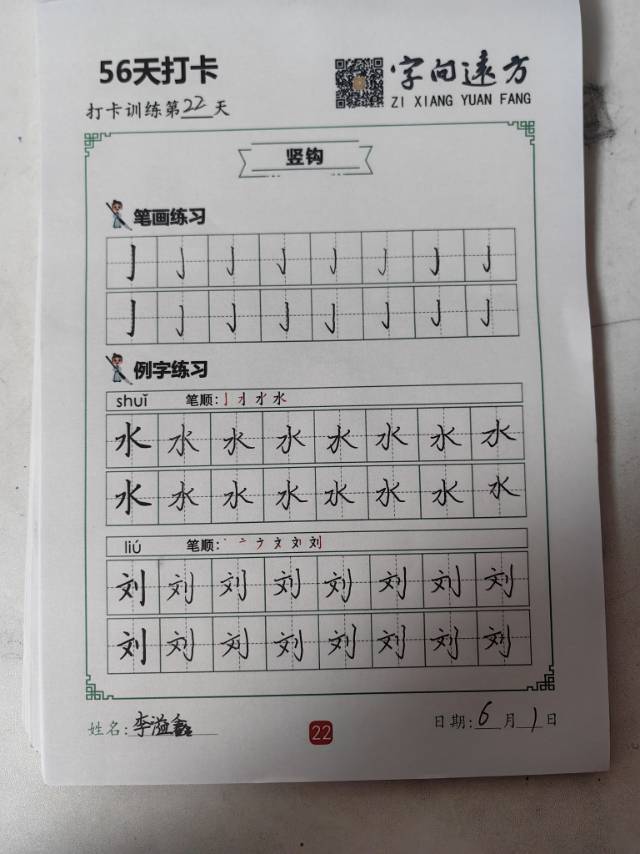 56天打卡
字向远方
打卡训练第22天
ZI XIANG YUAN FANG
竖钩
笔画练习
亅亅亅亅亅亅亅亅
亅亅亅亅亅亅亅亅
例字练习
shuǐ 笔顺:
水水水水水水水水
水水水水水水水水
liú 笔顺:
刘刘刘刘刘刘刘刘
刘刘刘刘刘刘刘刘
姓名:李溢鑫
22
日期:6月1日